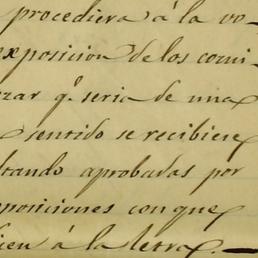 procediera á la vo-
exposicion de los comi-
zar q.e seria de una
sentido se recibiere
ltando aprobadas por
posiciones con que
bien á la letra.